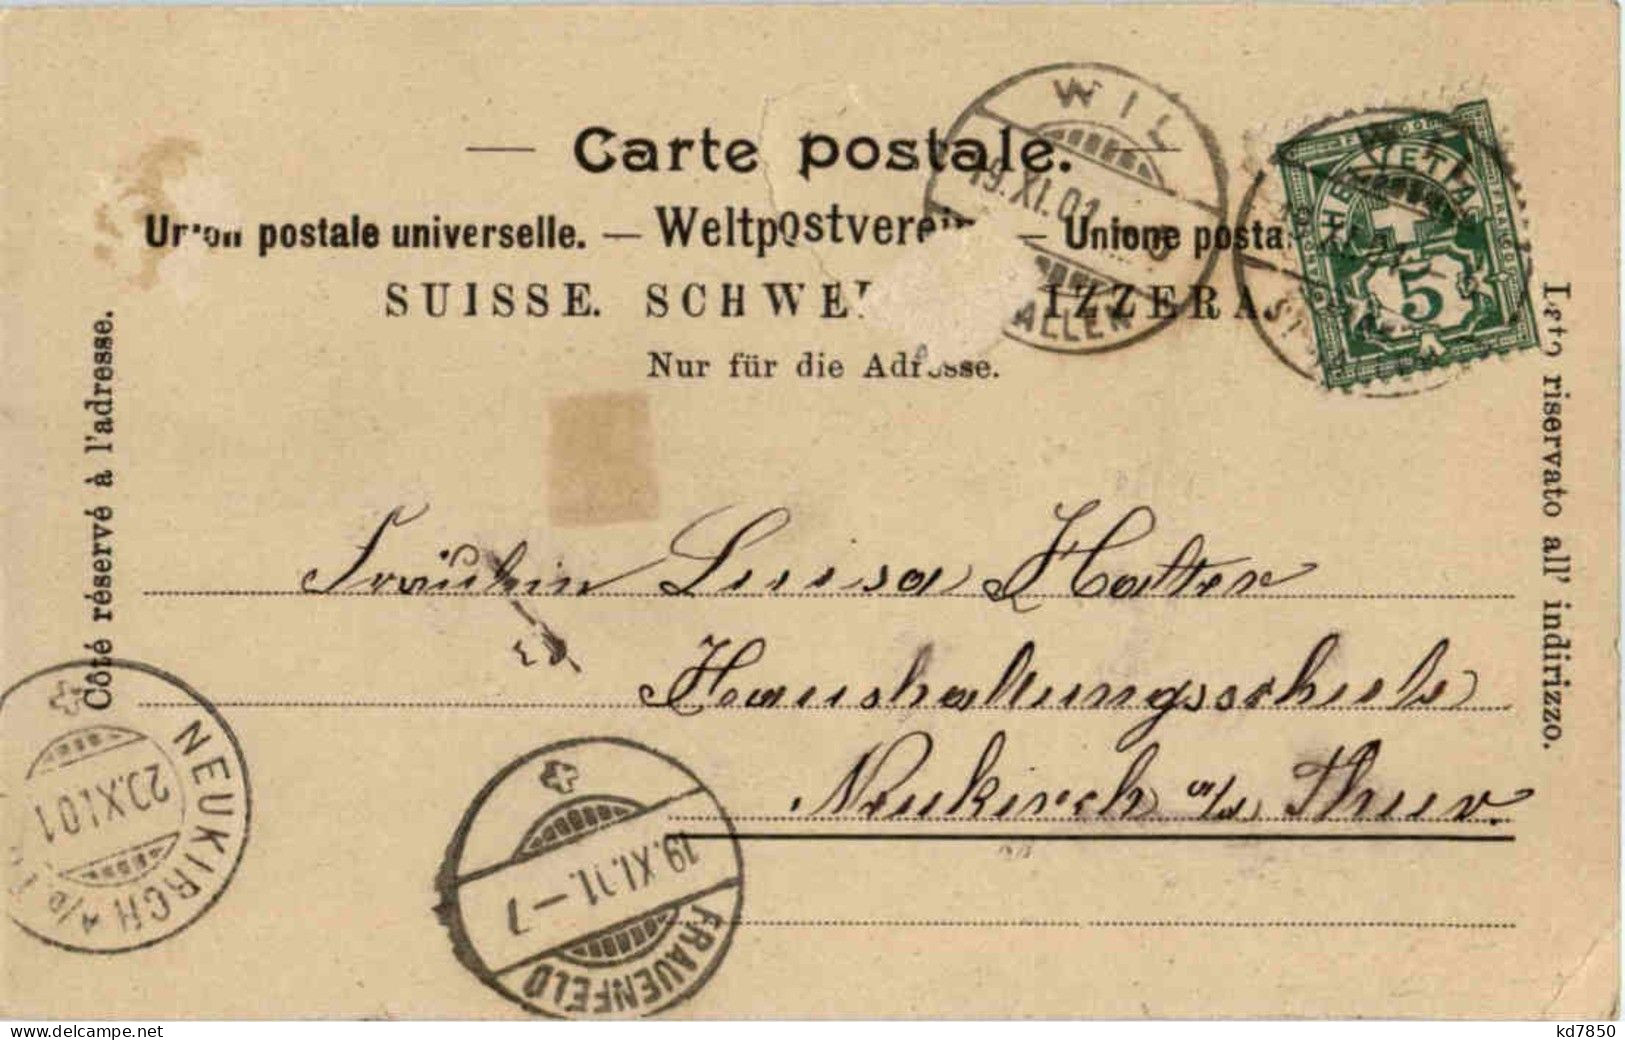 — Carte postale. —
Union postale universelle. — Weltpostverein — Unione posta
SUISSE. SCHWEI IZZERA.
Nur für die Adresse.
Côté réservé à l'adresse.
Lato riservato all' indirizzo.
WIL
19.XI.01
ALLEN
FRANCO
HELVETIA
FRANCO
5
WIL
ST
Fräulein Luisa Halter
Haushaltungsschule
Neukirch a/d Thur.
NEUKIRCH a/d T
20.XI.01
19.XI.01.-7
FRAUENFELD
www.delcampe.net
kd7850